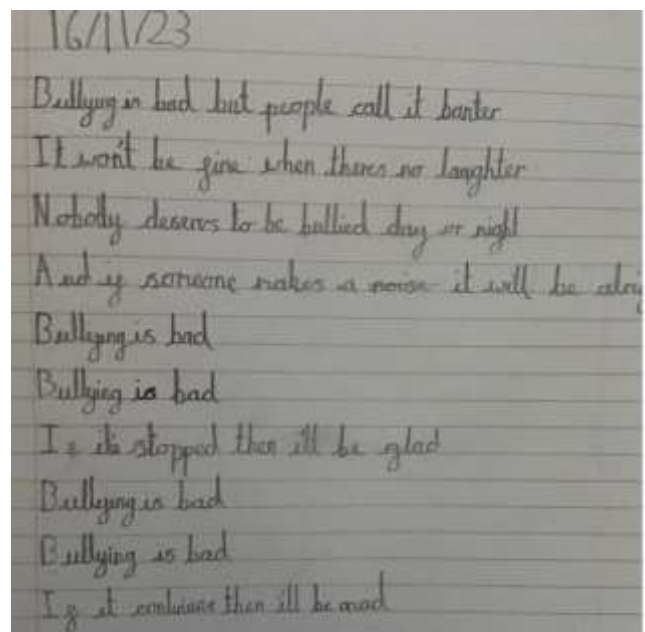 16/11/23
Bullying is bad but people call it banter
It won't be fine when theres no laughter
Nobody deserves to be bullied day or night
And if someone makes a noise it will be
Bullying is bad
Bullying is bad
If its stopped then ill be glad
Bullying is bad
Bullying is bad
If it continues then ill be mad